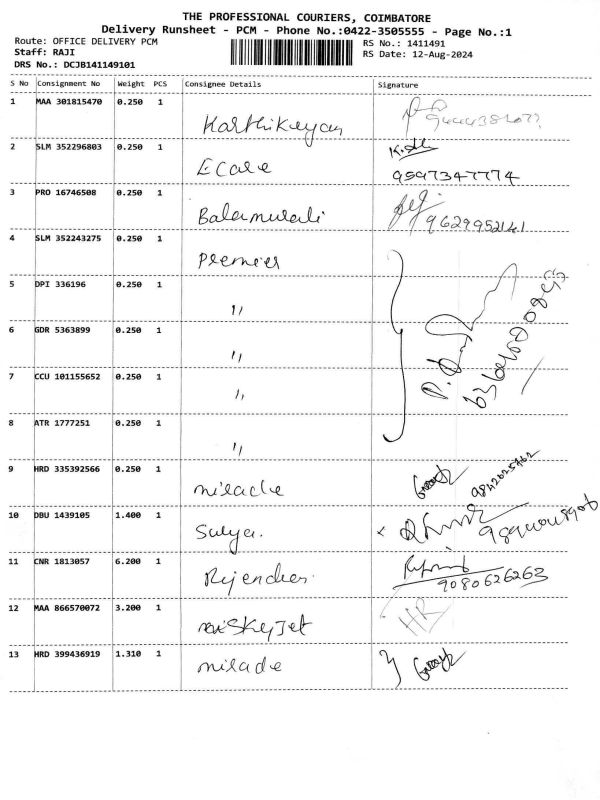 THE PROFESSIONAL COURIERS, COIMBATORE
Delivery Runsheet - PCM - Phone No.:0422-3505555 - Page No.:1
Route: OFFICE DELIVERY PCM
Staff: RAJI
DRS No.: DCJB141149101
RS No.: 1411491
RS Date: 12-Aug-2024
S No Consignment No Weight PCS Consignee Details Signature
1 MAA 301815470 0.250 1 Karthikeyan
2 SLM 352296803 0.250 1 Ecare 9597347774
3 PRO 16746508 0.250 1 Balamurali 9629952141
4 SLM 352243275 0.250 1 Premier
5 DPI 336196 0.250 1 "
6 GDR 5363899 0.250 1 "
7 CCU 101155652 0.250 1 "
8 ATR 1777251 0.250 1 "
9 HRD 335392566 0.250 1 miracle
10 DBU 1439105 1.400 1 Surya.
11 CNR 1813057 6.200 1 9080626263
12 MAA 866570072 3.200 1 SkyJet HR
13 HRD 399436919 1.310 1 miracle